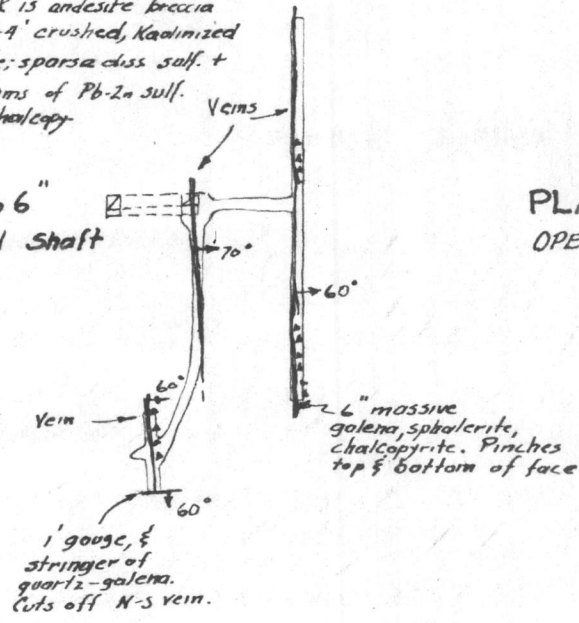 is andesite breccia
4' crushed, Kaolinized
; sparse diss sulf. +
of Pb-Zn sulf.
Veins
6"
shaft
70°
60°
60°
Vein
60°
6" massive
galena, sphalerite,
chalcopyrite. Pinches
top & bottom of face
1' gouge, &
stringer of
quartz-galena.
Cuts off N-S vein.